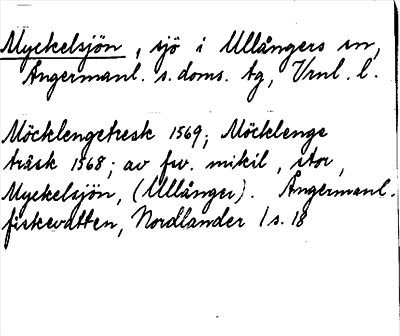 Myckelsjön, sjö i Ullångers sn,
Ångermanl. s. doms. tg, Vrnl. l.
Möcklengetresk 1569; Möcklenge
träsk 1568; av fsv. mikil, stor,
Myckelsjön, (Ullånger). Ångermanl.
fiskevatten, Nordlander / s. 18